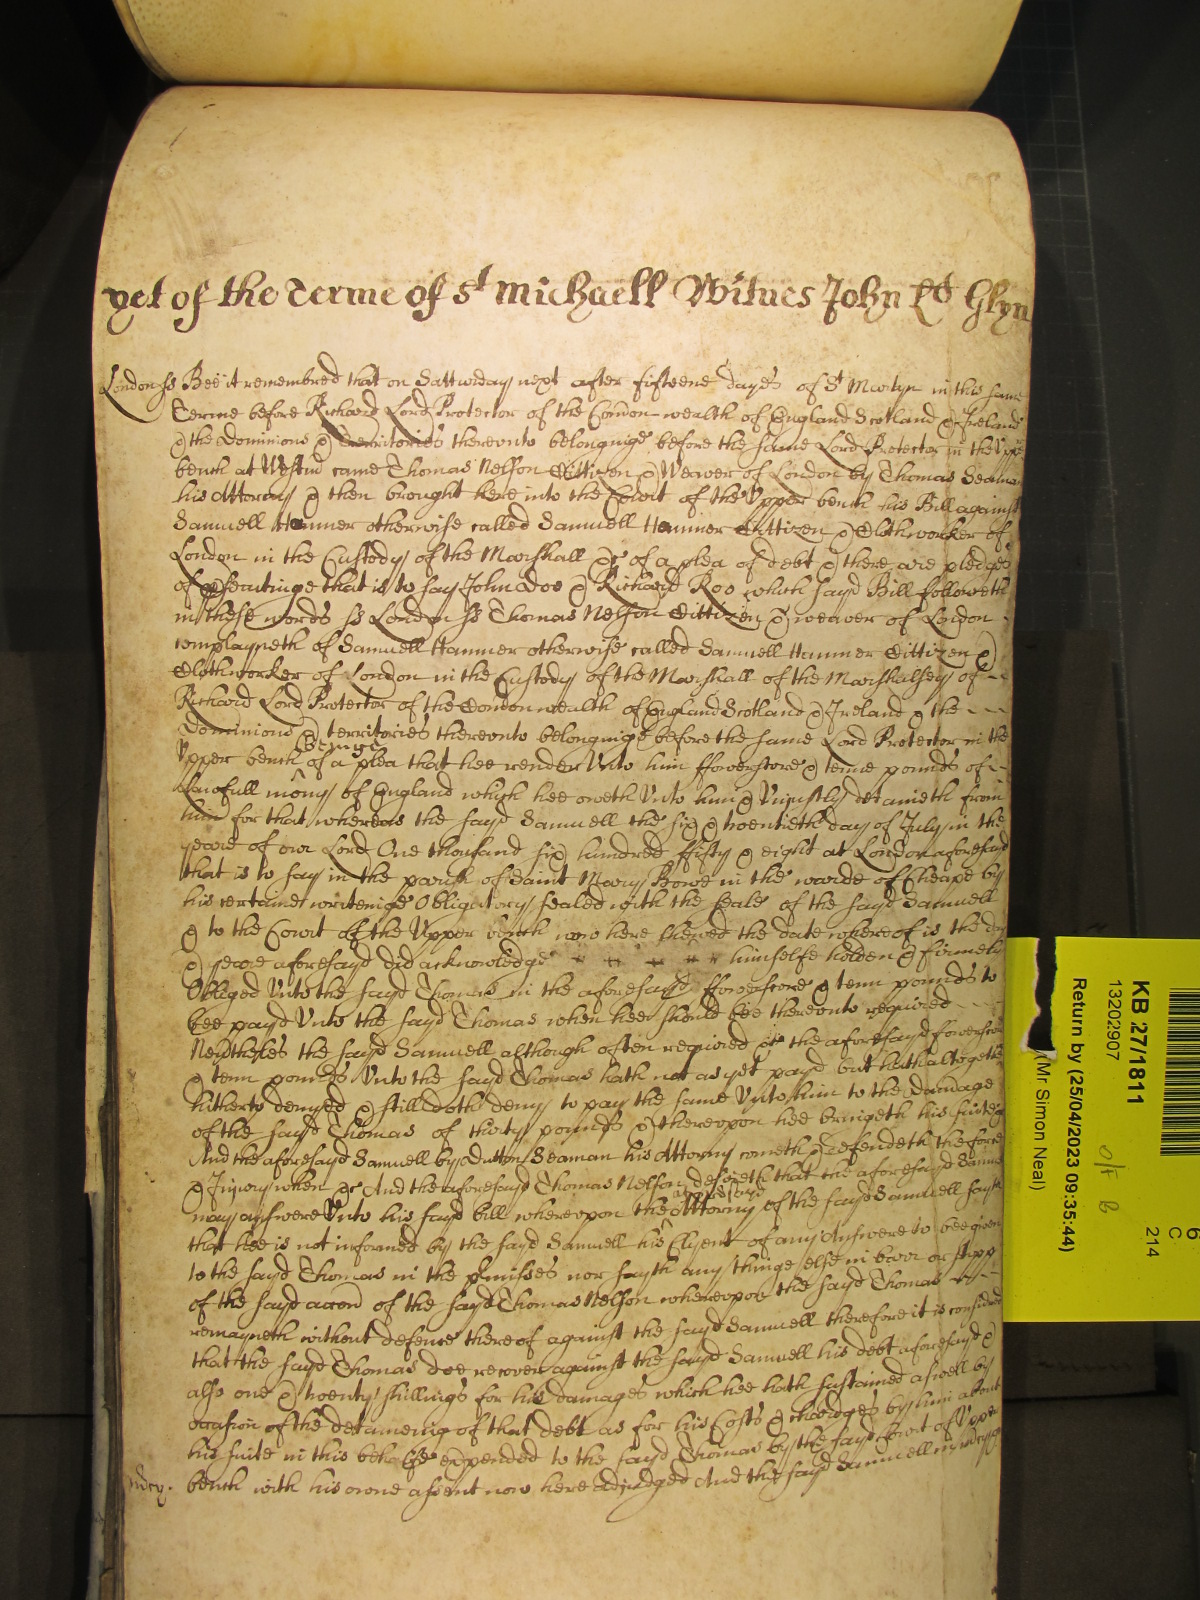 yet of the Terme of St Michaell Witnes John Ld Glyn
London ss Bee it remembred that on Satturday next after fifteene dayes of St Martyn in this same
Terme before Richard Lord Protector of the Common wealth of England Scotland & Ireland
& the Dominions & territories thereonto belonginge before the same Lord Protector in the Upper
bench at Westmr came Thomas Nelson Cittizen & Weaver of London by Thomas Seaman
his Attorny & then brought here into the Court of the Upper bench his Bill against
Samuell Hanmer otherwise called Samuell Hanmer Cittizen & Clothworker of
London in the Custody of the Marshall &c of a plea of debt & there are pledges
of p̱seautinge that is to say John Doe & Richard Roo which sayd Bill followeth
in these words ss London ss Thomas Nelson Cittizen & weaver of London
complayneth of Samuell Hanmer otherwise called Samuell Hanmer Cittizen &
Clothworker of London in the Custody of the Marshall of the Marshalsey of
Richard Lord Protector of the Common wealth of England Scotland & Ireland & the
Dominions & territories thereonto belonginge before the same Lord Protector in the
beinge
Upper bench of a plea that hee render Unto him ffowerscore & tenne pounds of
lawfull mony of England which hee oweth Unto him & Uniustly detaineth from
him for that whereas the sayd Samuell the six & twentieth day of July in the
yeare of our Lord One thousand six hundred ffifty & eight at London aforesayd
that is to say in the parish of Saint Mary Bowe in the warde of Cheape by
his certaine writeinge Obligatory sealed with the seale of the sayd Samuell
& to the Court of the Upper bench now here shewed the date whereof is the day
& yeare aforesayd did acknowledge himselfe holden & firmely
Obliged Unto the sayd Thomas in the aforesayd ffowerscore & tenn pounds to
bee payd Unto the sayd Thomas when hee should bee thereonto required
Neptheles the sayd Samuell although often required &c the aforesayd fowerscore
& tenn pounds Unto the sayd Thomas hath not as yet payd but hath altogether
hitherto denyed & still doth deny to pay the same Unto him to the Damage
of the sayd Thomas of thirty pounds & thereopon hee bringeth his suite &c
And the aforesayd Samuell by Dutton Seaman his Attorny cometh & Defendeth the force
& Iniury when &c And the aforesayd Thomas Nelson desireth that the aforesayd Samuell
aforesayd
may answere Unto his sayd bill whereopon the Attorny of the sayd Samuell sayth
that hee is not informed by the sayd Samuell his Clyent of any Answere to bee given
to the sayd Thomas in the p̱misses nor sayth any thinge else in barr or stopp
of the sayd accon of the sayd Thomas Nelson whereopon the sayd Thomas
remayneth without defence thereof against the sayd Samuell therefore it is considered
that the sayd Thomas doe recover against the sayd Samuell his debt aforesayd &
also one & twenty shillings for his damages which hee hath sustained aswell by
occasion of the detaineing of that debt as for his Costs & chardges by him about
his suite in this behalfe expended to the sayd Thomas by the sayd Court of Upper
bench with his owne assent now here adiudged And the sayd Samuell in mercy &c
mercy.
KB 27/1811
13202907
Return by (25/04/2023 09:35:44)
(Mr Simon Neal)
o/f B
6
C
214